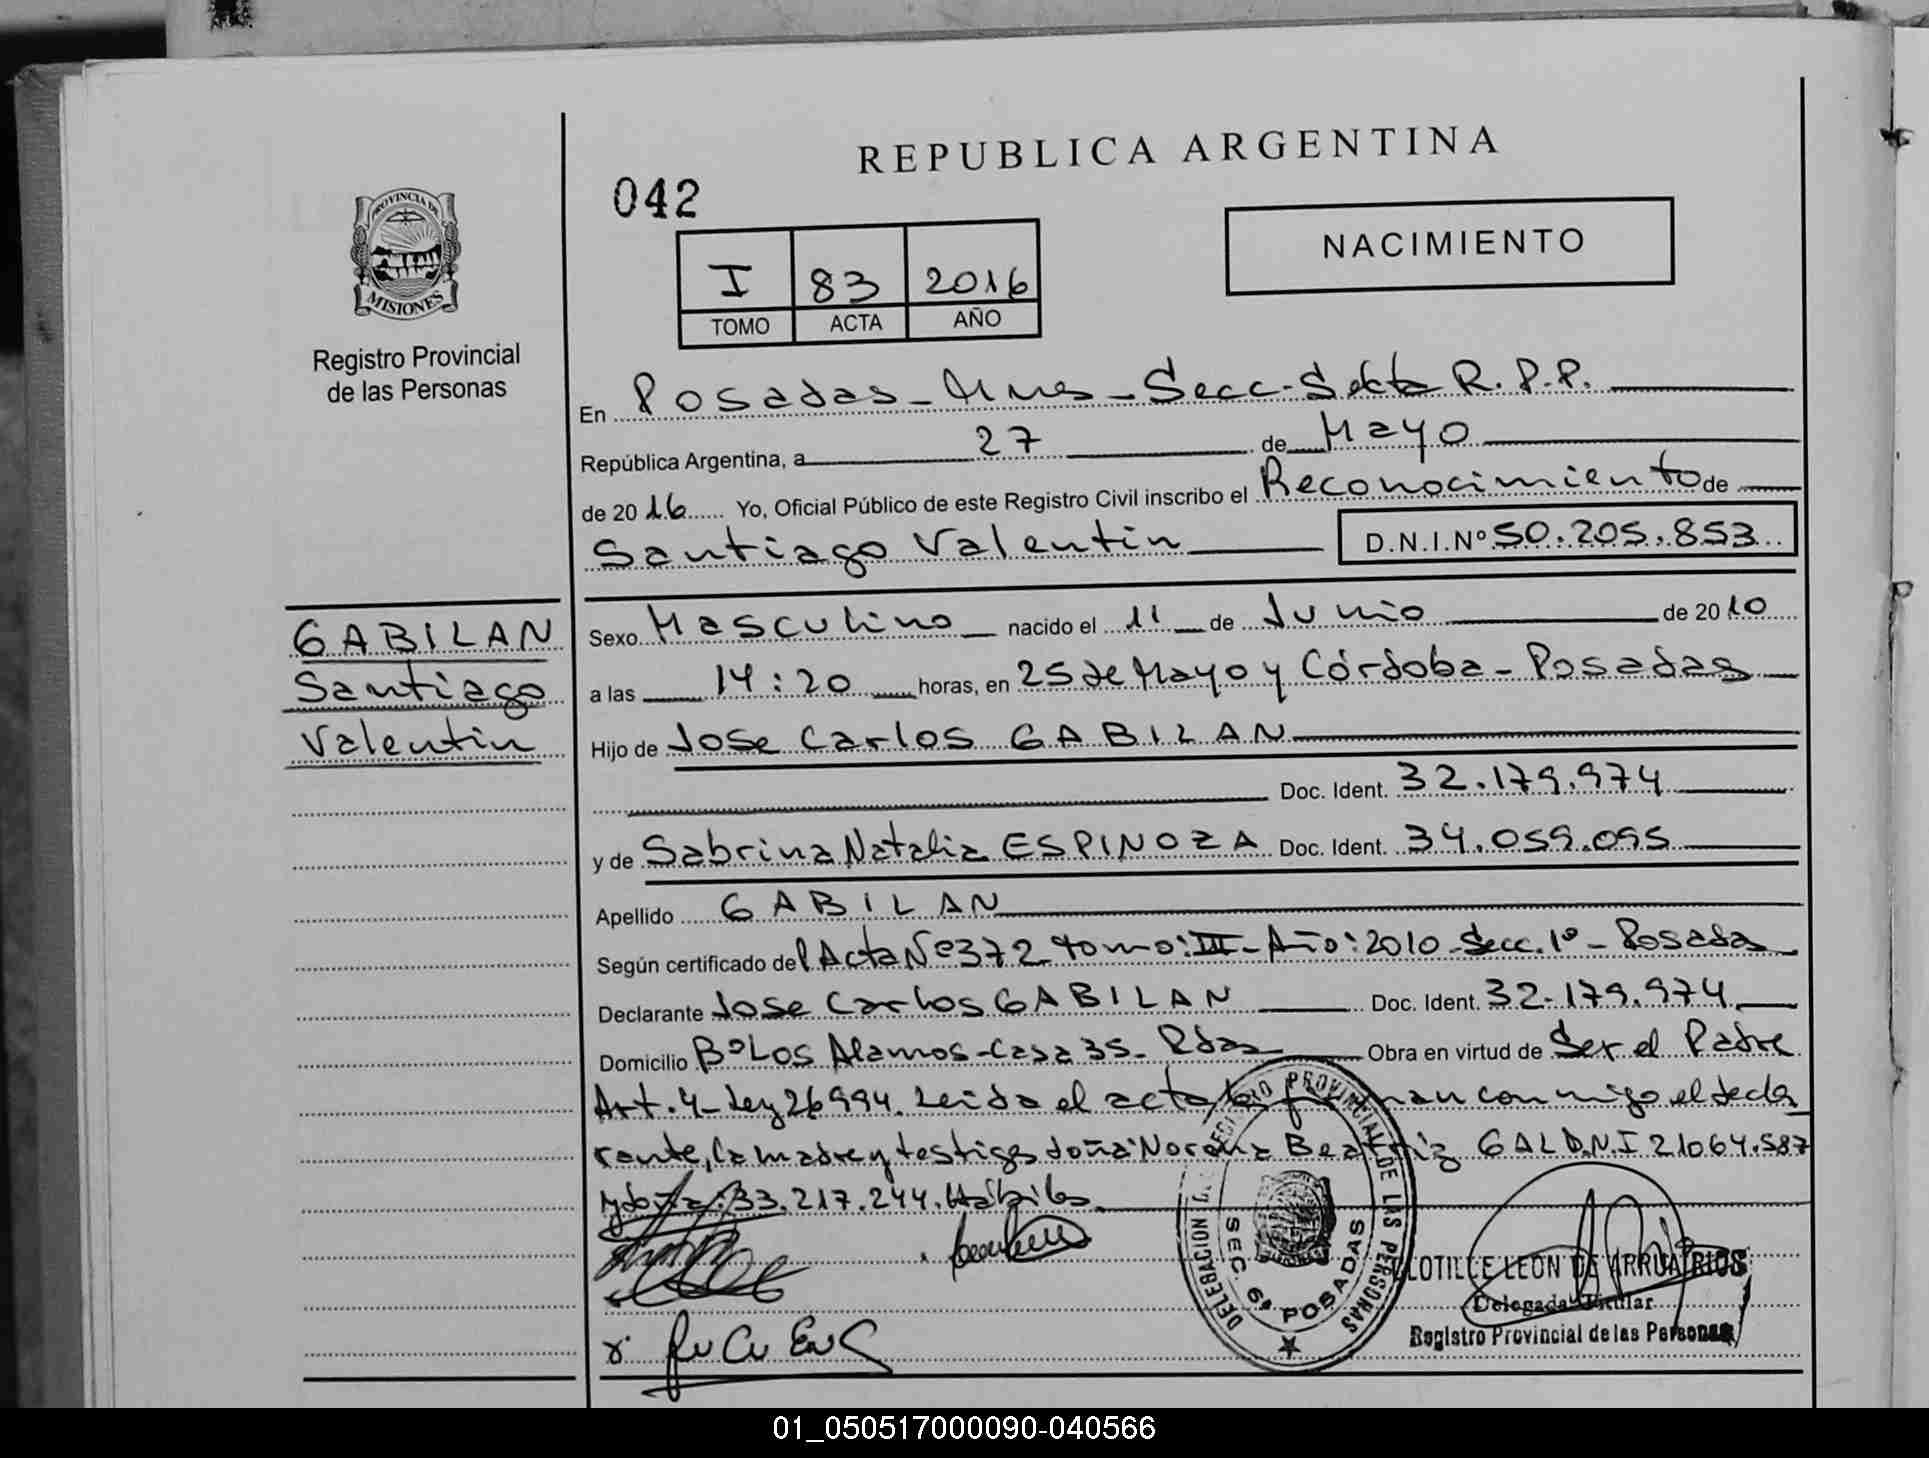 REPUBLICA ARGENTINA
042
NACIMIENTO
PROVINCIA DE
MISIONES
I 83 2016
TOMO ACTA AÑO
Registro Provincial
de las Personas
En Posadas - Mnes - Secc. Sexta R.P.P.
República Argentina, a 27 de Mayo
de 2016 Yo, Oficial Público de este Registro Civil inscribo el Reconocimiento de
Santiago Valentin D.N.I.Nº 50.205.853
GABILAN
Santiago
Valentin
Sexo Masculino nacido el 11 de Junio de 2010
a las 14:20 horas, en 25 de Mayo y Córdoba - Posadas
Hijo de Jose Carlos GABILAN
Doc. Ident. 32.179.974
y de Sabrina Natalia ESPINOZA Doc. Ident. 34.059.095
Apellido GABILAN
Según certificado del Acta Nº 372 tomo: III - Año: 2010 - Secc. 1º - Posadas
Declarante Jose Carlos GABILAN Doc. Ident. 32.179.974
Domicilio Bº Los Alamos - Casa 35 - Pdas Obra en virtud de Ser el Padre
Art. 4 - Ley 26994. Leida el acta la firman conmigo el decla
rante, la madre y testigos doña: Norma Beatriz GAL D.N.I 21064.587
y doña: 33.217.244. Hábiles
DELEGACION REGISTRO PROVINCIAL DE LAS PERSONAS
SEC. 6ª POSADAS
CLOTILDE LEON DE ARRUA RIOS
Delegada Titular
Registro Provincial de las Personas
01_050517000090-040566